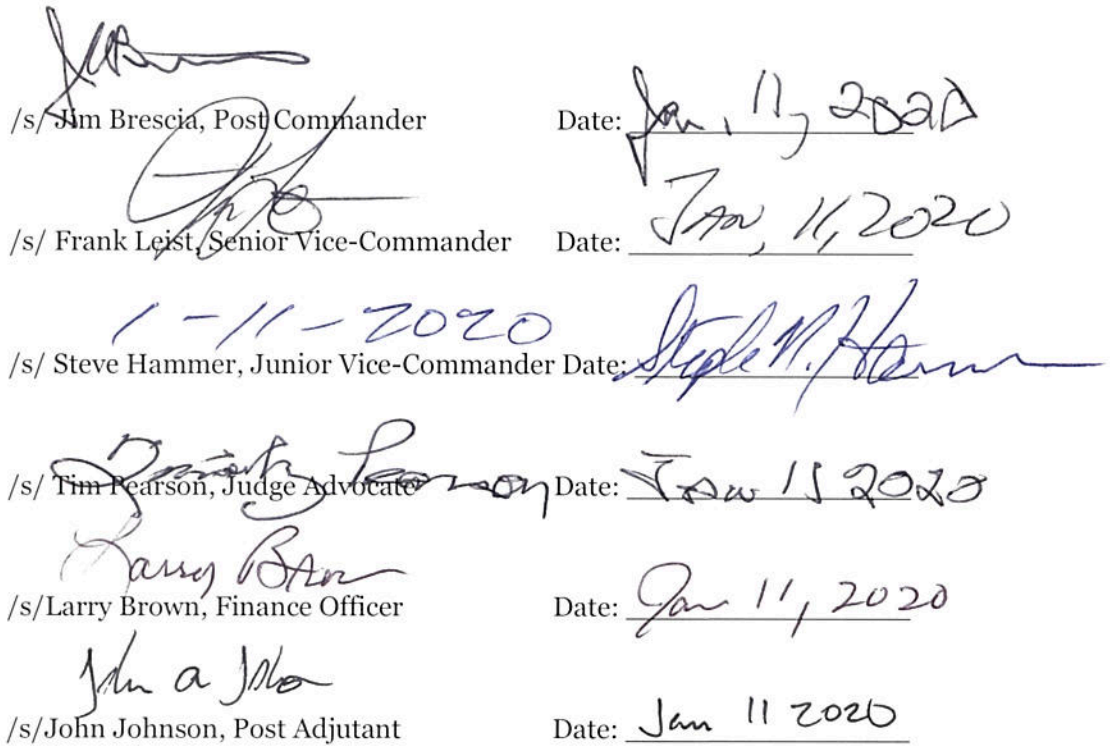 /s/ Jim Brescia, Post Commander Date: Jan, 11, 2020
/s/ Frank Leist, Senior Vice-Commander Date: JAN, 11, 2020
1-11-2020
/s/ Steve Hammer, Junior Vice-Commander Date:
/s/ Tim Pearson, Judge Advocate Date: JAN 11 2020
Larry Brown
/s/Larry Brown, Finance Officer Date: Jan 11, 2020
John a
/s/John Johnson, Post Adjutant Date: Jan 11 2020